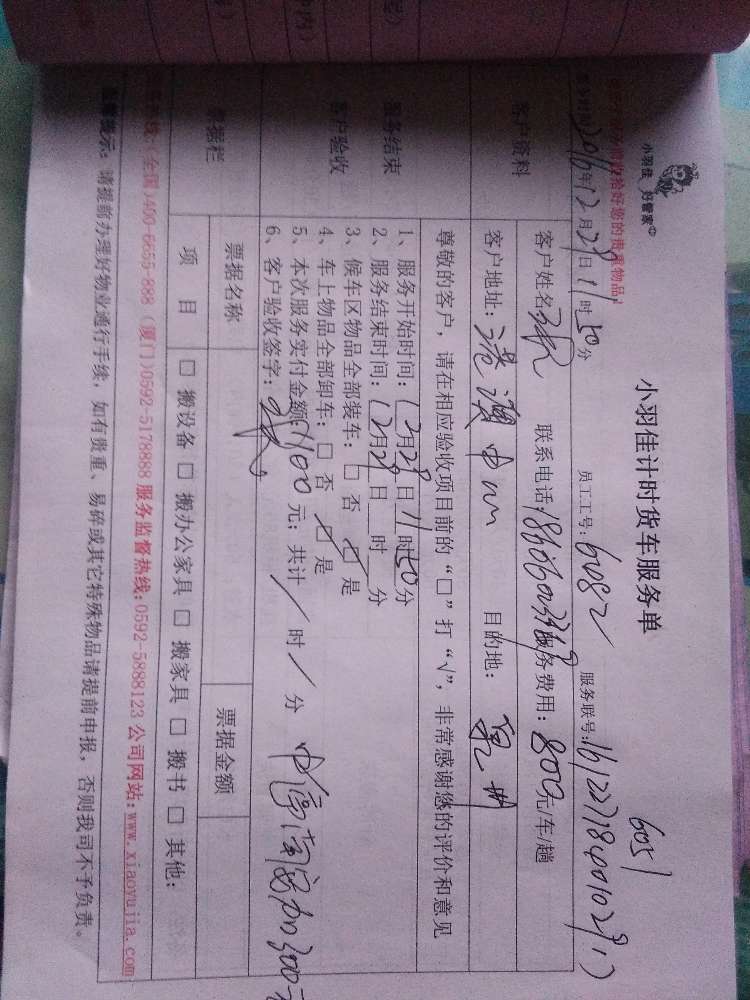 小羽佳 好管家
小羽佳计时货车服务单
6051
2016年12月28日11时50分 员工工号:6082 服务联号:
客户资料
客户姓名 联系电话: 服务费用:800元/车/趟
客户地址: 目的地:
尊敬的客户,请在相应验收项目前的“□”打“√”,非常感谢您的评价和意见
服务结束
客户验收
1、服务开始时间:12月28日11时50分
2、服务结束时间:12月29日 时 分
3、候车区物品全部装车:□ 否 ☑ 是
4、车上物品全部卸车:□ 否 ☑ 是
5、本次服务实付金额:1100元;共计 / 时 / 分
6、客户验收签字:
票据栏
票据名称 票据金额
项 目 □ 搬设备 □ 搬办公家具 □ 搬家具 □ 搬书 □ 其他:
(全国)400-6655-888 (厦门)0592-5178888 服务监督热线:0592-5888123 公司网站:www.xiaoyujia.com
提示:请提前办理好物业通行手续,如有贵重、易碎或其它特殊物品请提前申报,否则我司不予负责。